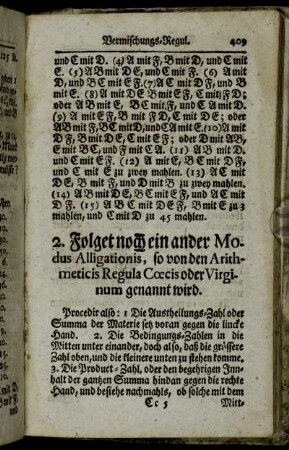 Vermischungs-Regul. 409
und C mit D. (4) A mit F, B mit D, und C mit
E. (5) A B mit D E, und C mit F. (6) A mit
D, und B C mit E F. (7) A C mit D F, und B
mit E. (8) A mit D E B mit E F, C mit F D
oder A B mit E, B C mit F, und C A mit D.
(9) A mit E F, B mit F D, C mit D E; oder
A B mit F, B C mit D, und C A mit E. (10) A mit
D F, B mit D E, C mit E F; oder D mit A B,
E mit B C, und F mit C A. (11) A B mit D,
und C mit E F. (12) A mit E, B C mit D F,
und C mit E zu zwey mahlen. (13) A C mit
D E, B mit F, und D mit B zu zwey mahlen.
(14) A B mit D E, B C mit E F, und A C mit
D F. (15) A B C mit D E F, B mit E zu 3
mahlen, und C mit D zu 45 mahlen.
2. Folget noch ein ander Mo-
dus Alligationis, so von den Arith-
meticis Regula Cœcis oder Virgi-
num genannt wird.
Procedir also: 1 Die Austheilungs-Zahl oder
Summa der Materie setz voran gegen die lincke
Hand. 2. Die Bedingungs-Zahlen in die
Mitten unter einander, doch also, daß die grössere
Zahl oben, und die kleinere unten zu stehen komme.
3. Die Product-Zahl, oder den begehrten Inn-
halt der gantzen Summa hindan gegen die rechte
Hand, und besiehe nachmahls, ob solche mit dem
Cc 5 Mitt-